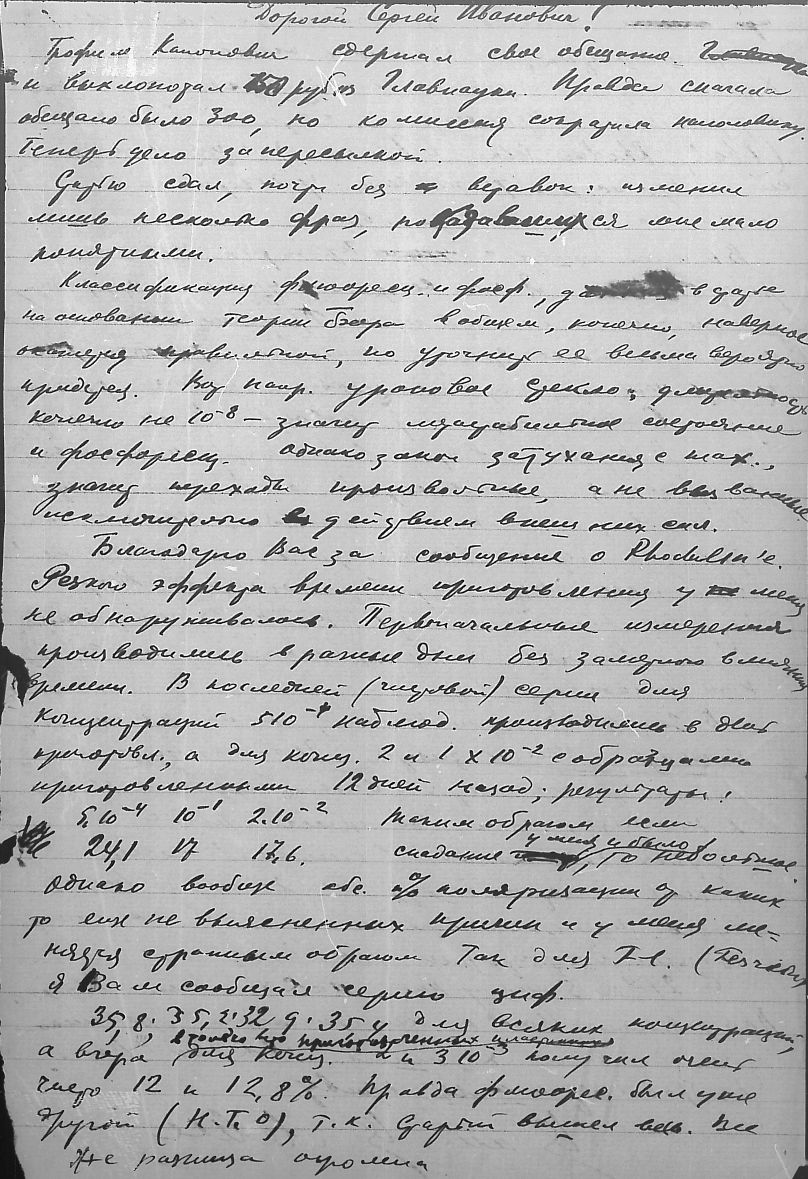 Дорогой Сергей Иванович!
Трофим Кононович сдержал свое обещание.
и выхлопотал 150 руб из Главнауки. Правда сначала
обещано было 300, но комиссия сократила наполовину.
Теперь дело за пересылкой.
Статью сдал, почти без вставок: изменил
лишь несколько фраз, показавшихся мне мало
понятными.
Классификация флюоресц. и фосф., в статье
на основании теории Бора в общем, конечно, наверное
окажется правильной, но уточнить ее весьма вероятно
придется. Вот напр. урановое стекло:
конечно не 10⁻⁸ – значит метастабильное состояние
и фосфоресц. Однако закон затухания e^-αx.,
значит переходы произвольные, а не вызванные
исключительно действием внешних сил.
Благодарю Вас за сообщение о Rhodulin'е.
Резкого эффекта времени приготовления у меня
не обнаруживалось. Первоначальные измерения
производились в разные дни без заметного влияния
времени. В последней (чистовой) серии для
концентраций 5 10⁻⁴ наблюд. производились в день
приготовл., а для конц. 2 и 1 x 10⁻² с образцами
приготовленными 12 дней назад; результаты:
5.10⁻⁴ 10⁻¹ 2.10⁻² Таким образом если
24,1 17 17,6. спадание у меня и было, то небольшое
Однако вообще абс. % поляризации от каких
то еще не выясненных причин и у меня ме-
няется странным образом Так для
я Вам сообщал серию циф.
35,8; 35,2; 32,9; 35,4 для всяких концентраций,
в только что приготовленных
а вчера для конц. 2 и 3 10⁻³ получил очень
чисто 12 и 12,8%. Правда флюорес. был уже
другой (К.Т.О), т.к. Старый вышел весь. Все
же разница огромна